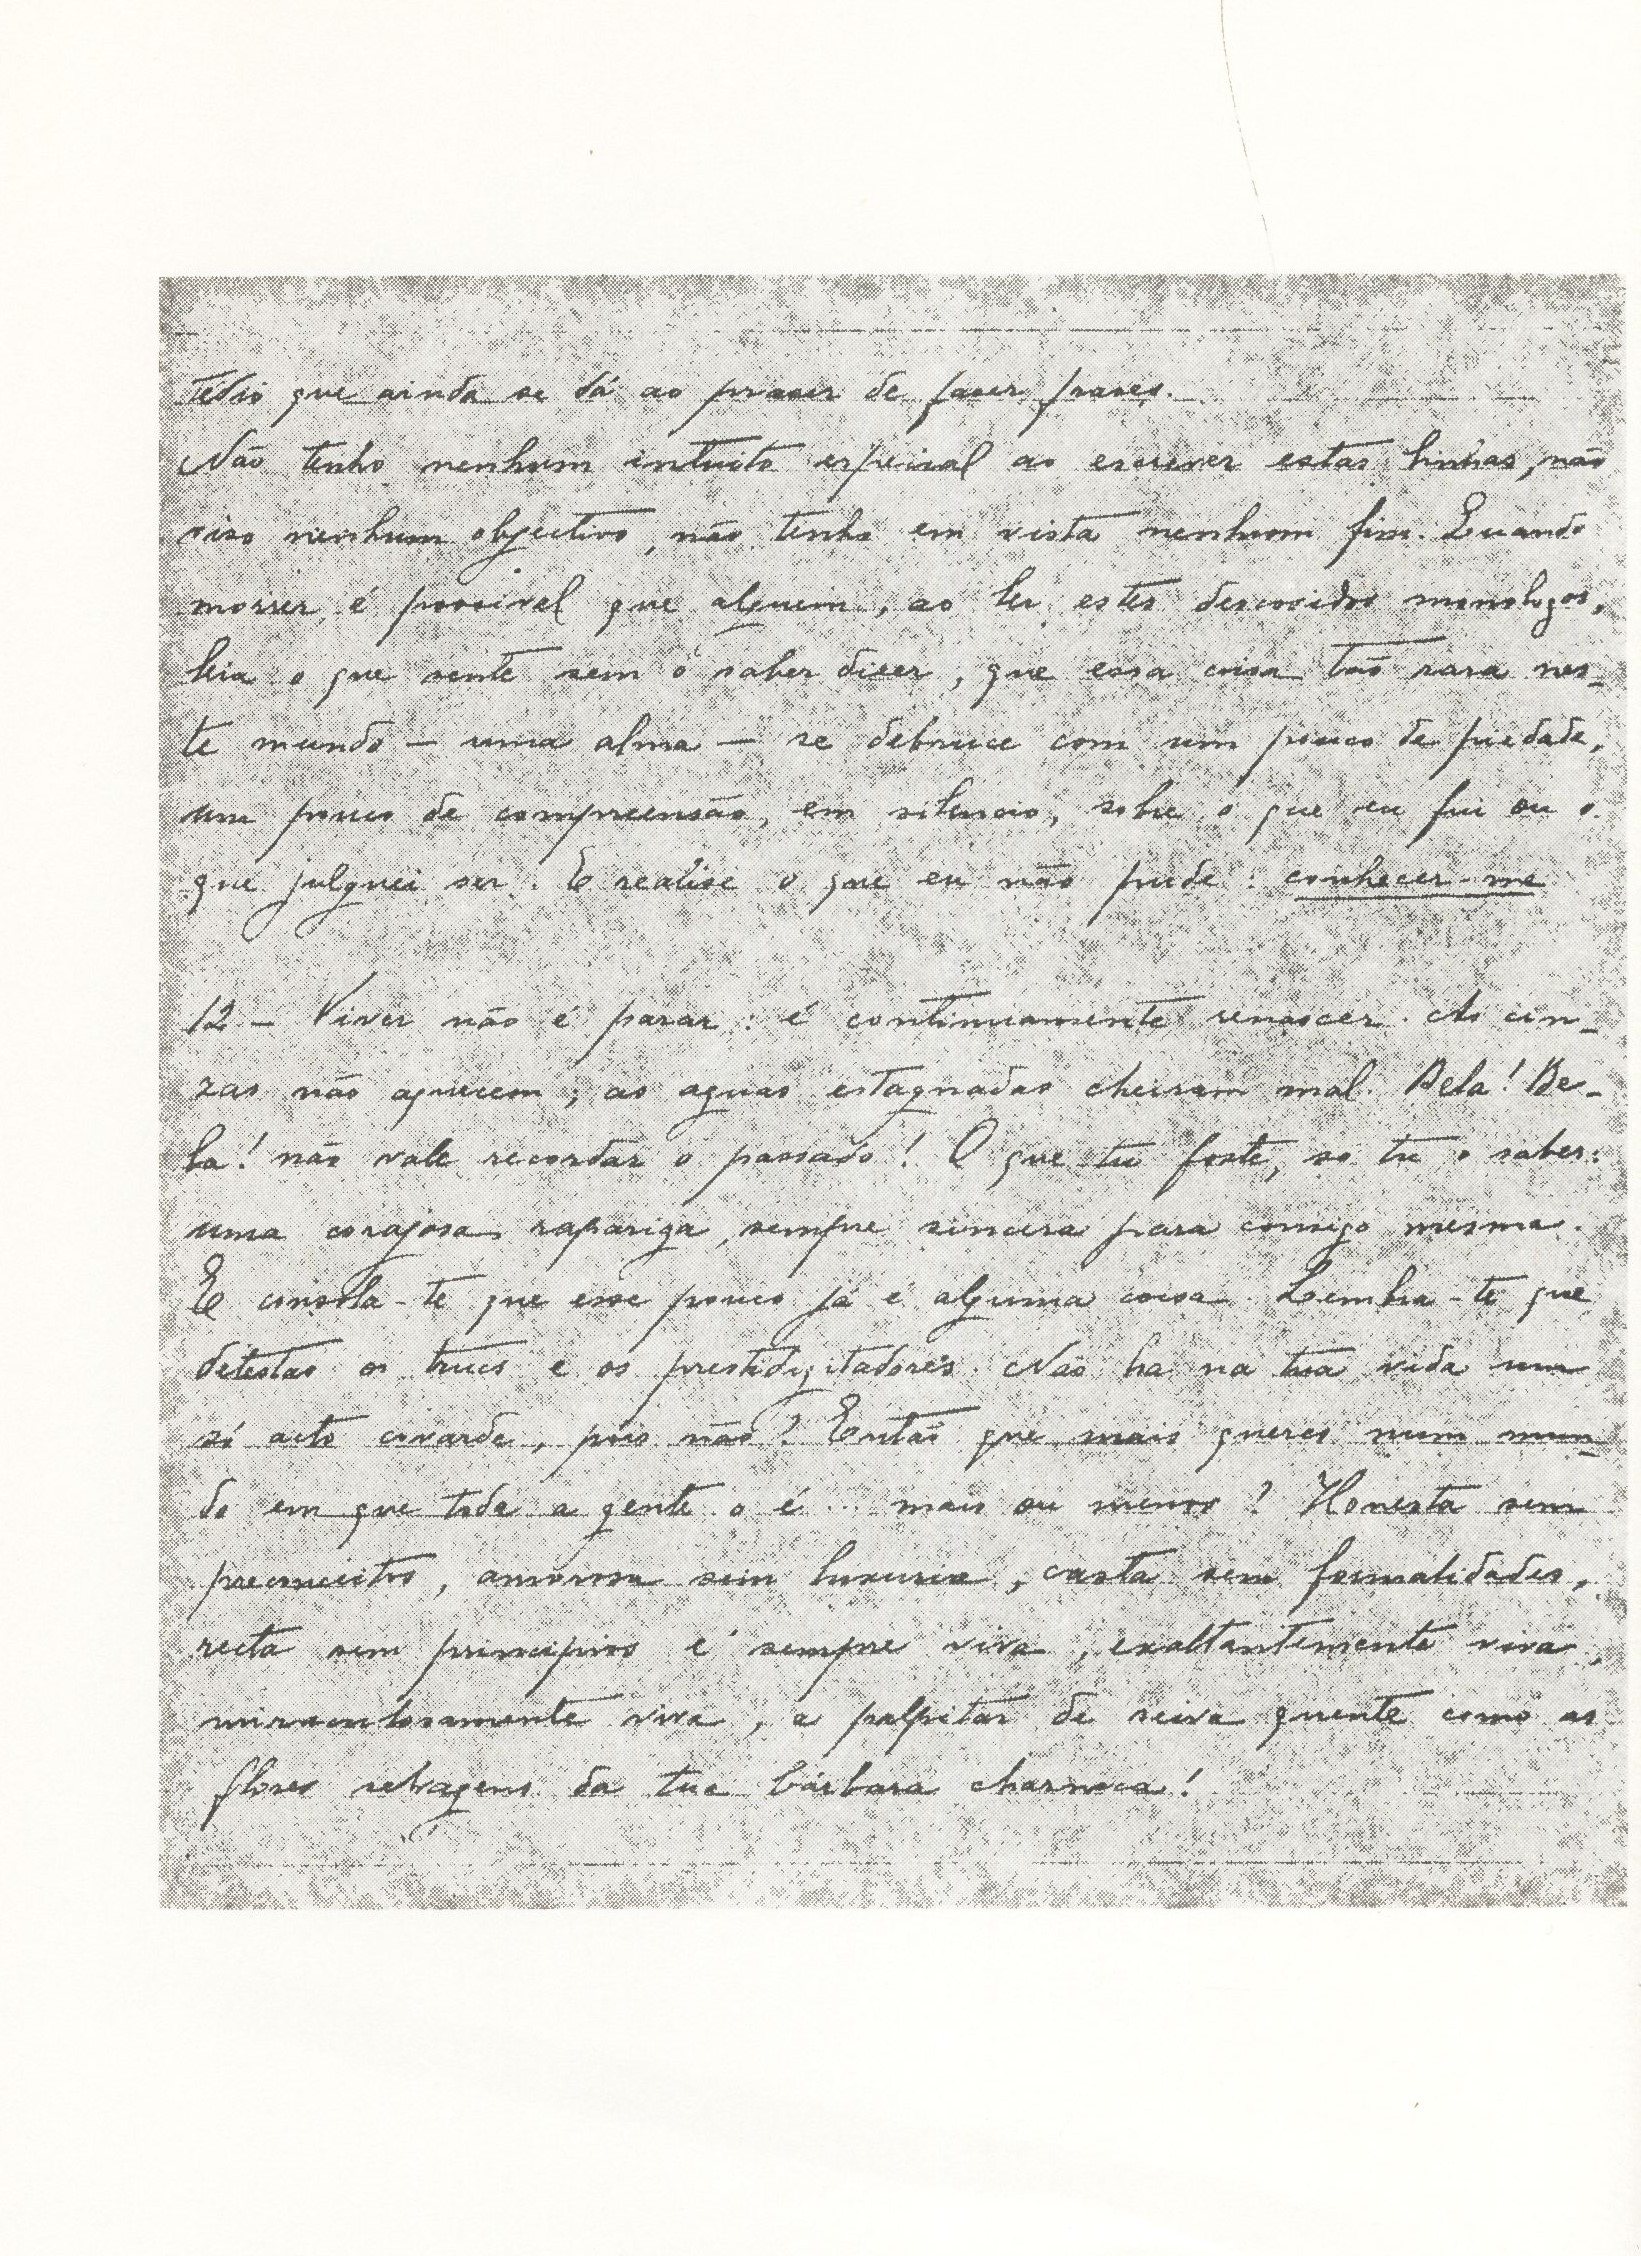 tédio que ainda se dá ao prazer de fazer frases.
Não tenho nenhum intuito especial ao escrever estas linhas, não
viso nenhum objectivo, não tenho em vista nenhum fim. Quando
morrer, é possivel que alguem, ao ler estes descosidos monologos,
leia o que sente sem o saber dizer, que essa coisa tão rara nes-
te mundo — uma alma — se debruce com um pouco de piedade,
um pouco de compreensão, em silencio, sobre o que eu fui ou o
que julguei ser. E realise o que eu não pude: conhecer-me
12 - Viver não é parar: é continuamente renascer. As cin-
zas não aquecem; as aguas estagnadas cheiram mal. Bela! Be-
la! não vale recordar o passado! O que tu foste, só tu o sabes:
uma corajosa rapariga, sempre sincera para comigo mesma.
E consola-te que esse pouco já é alguma coisa. Lembra-te que
detestas os trucs e os prestidigitadores. Não ha na tua vida um
só acto covarde, pois não? Então que mais queres num mun-
do em que toda a gente o é... mais ou menos? Honesta sem
preconceitos, amorosa sem luxuria, casta sem formalidades,
recta sem principios e sempre viva, exaltantemente viva,
miraculosamente viva, a palpitar de seiva quente como as
flores selvagens da tua bárbara charneca!